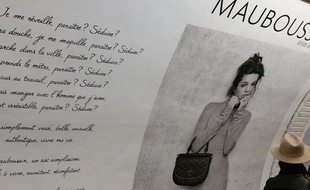 MAUBOUSS
Je me réveille, paraître? Séduire?
a douche, je me maquille, paraître? Séduire?
arche dans la ville, paraître? Séduire?
prends le métro, paraître? Séduire?
uis au travail, paraître? Séduire?
ais manger avec l'homme que j'aime,
t irrésistible, paraître? Séduire?
simplement vraie, belle, éveillée,
authentique, vivre ma vie.
auboussin, un sac simplissime.
à vivre, émouvant, réconfortant.